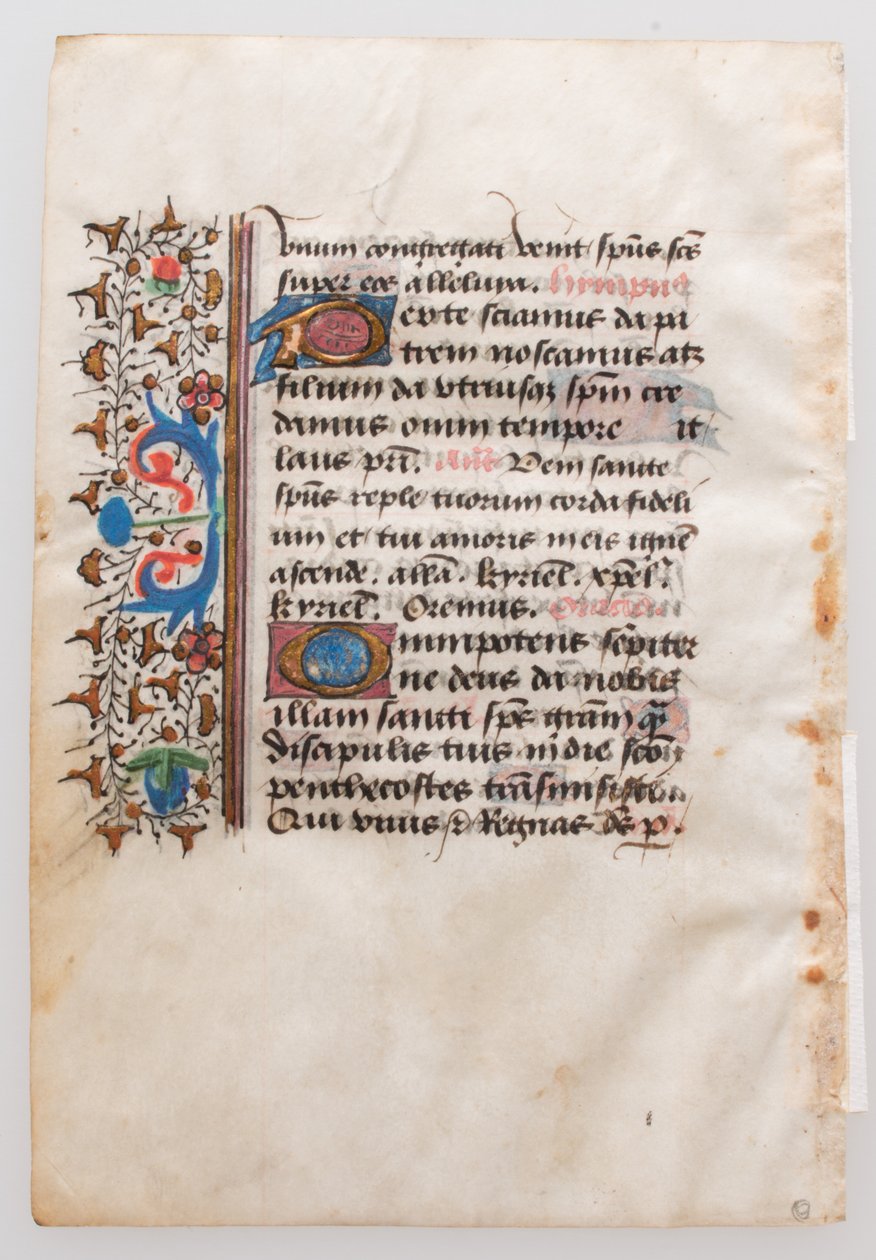 vnum congregati venit spūs scs
super eos alleluya. hympnus
Per te sciamus da pa
trem noscamus atqꝫ
filium da vtriusqꝫ spm cre
damus omni tempore it
laus pri. Añt Veni sancte
spūs reple tuorum corda fideli
um et tui amoris in eis ignē
ascende. allā. kyriel. xpel.
kyriel. Oremus. Oratio.
Omnipotens sēpiter
ne deus da nobis
illam sancti sps grām qm̄
discipulis tuis in die scōm
penthecostes trāsmisisti
Qui viuis ⁊ Regnas ds p.